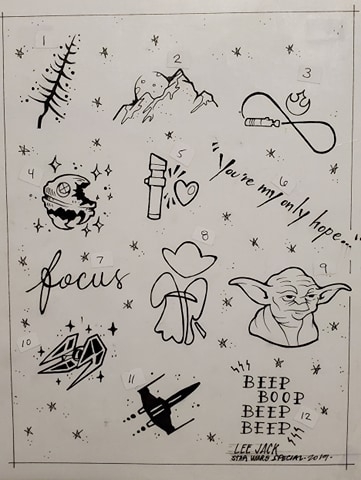 1
2
3
4
5
"You're my only hope..."
6
focus
7
8
9
10
11
BEEP
BOOP
BEEP
BEEP
12
LEE JACK
STAR WARS SPECIAL - 2019 -